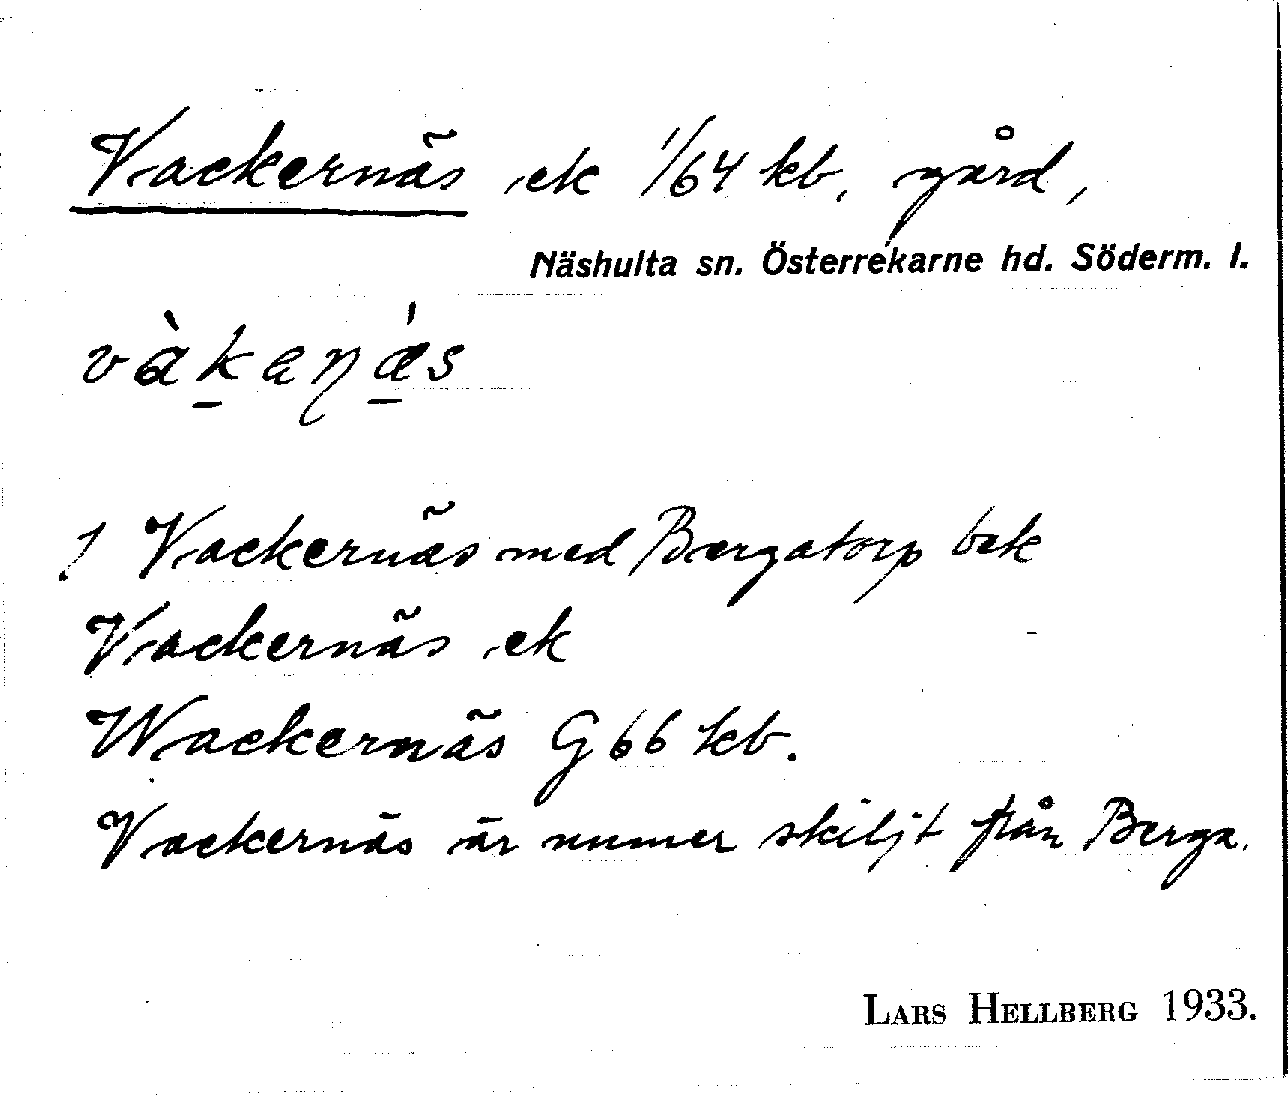 Vackernäs ek 1/64 kb, gård,
Näshulta sn. Österrekarne hd. Söderm. l.
vàkaṇæ̀s
J Vackernäs med Bergatorp bek
Vackernäs ek
Wackernäs G66 kb.
Vackernäs är numer skiljt från Berga.
LARS HELLBERG 1933.